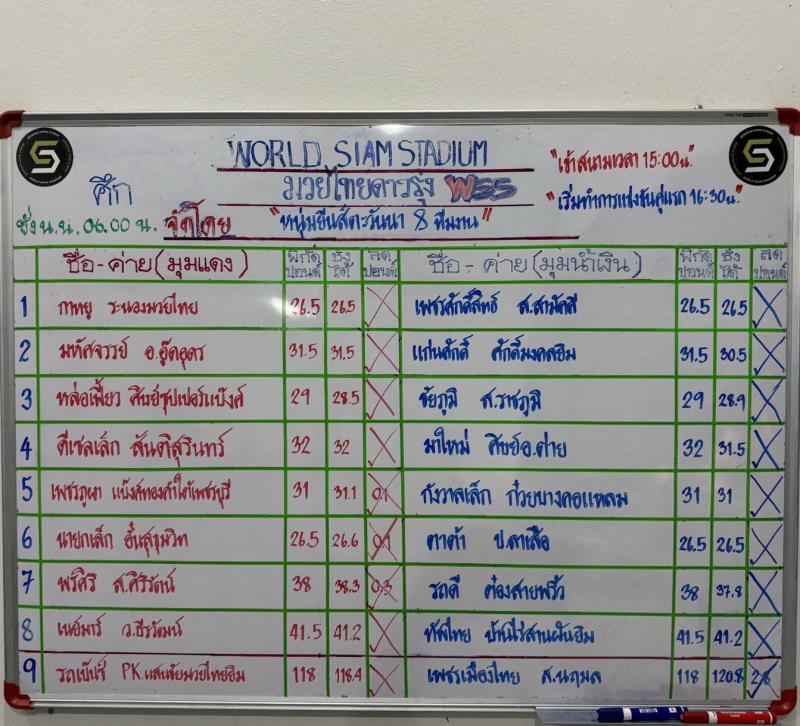 WORLD SIAM STADIUM
"เข้าสนามเวลา 15:00น."
ศึก มวยไทยดาวรุ่ง WSS
"เริ่มทำการแข่งขันคู่แรก 16:30น."
ชั่ง น.น. 06.00 น. จัดโดย "หนุ่มยีนส์ตะวันนา 8 ทีมงาน"
ชื่อ-ค่าย (มุมแดง) พิกัดปอนด์ ชั่งได้ ลดปอนด์ ชื่อ-ค่าย (มุมน้ำเงิน) พิกัดปอนด์ ชั่งได้ ลดปอนด์
1 กาหยู ระนองมวยไทย 26.5 26.5 X เพชรศักดิ์สิทธิ์ ส.สามัคคี 26.5 26.5 X
2 มหัศจรรย์ อ.อู๊ดอุดร 31.5 31.5 X แก่นศักดิ์ ศักดิ์มงคลยิม 31.5 30.5 X
3 หล่อเฟี้ยว ศิษย์ซุปเปอร์แบ๊งค์ 29 28.5 X ชัยภูมิ ส.ราชภูมิ 29 28.9 X
4 ดีเซลเล็ก สันติสุรินทร์ 32 32 X มาใหม่ ศิษย์อ.ต่าย 32 31.5 X
5 เพชรภูผา แบ๊งค์ทองคำใต้เพชรบุรี 31 31.1 0.1 กังวาลเล็ก ก๋วยบางคอแหลม 31 31 X
6 นายกเล็ก อั๋นสุขุมวิท 26.5 26.6 0.1 ตาต้า ป.ตาเสือ 26.5 26.5 X
7 พรศิริ ส.ศิริรัตน์ 38 38.3 0.3 รถดี ต๋องสายพริ้ว 38 37.8 X
8 เนย์มาร์ ว.ธีรวัฒน์ 41.5 41.2 X ทัพไทย บ้านไร่สานฝันยิม 41.5 41.2 X
9 รถเบ๊นซ์ PK.แสนชัยมวยไทยยิม 118 118.4 X เพชรเมืองไทย ส.นฤมล 118 120.8 2.8